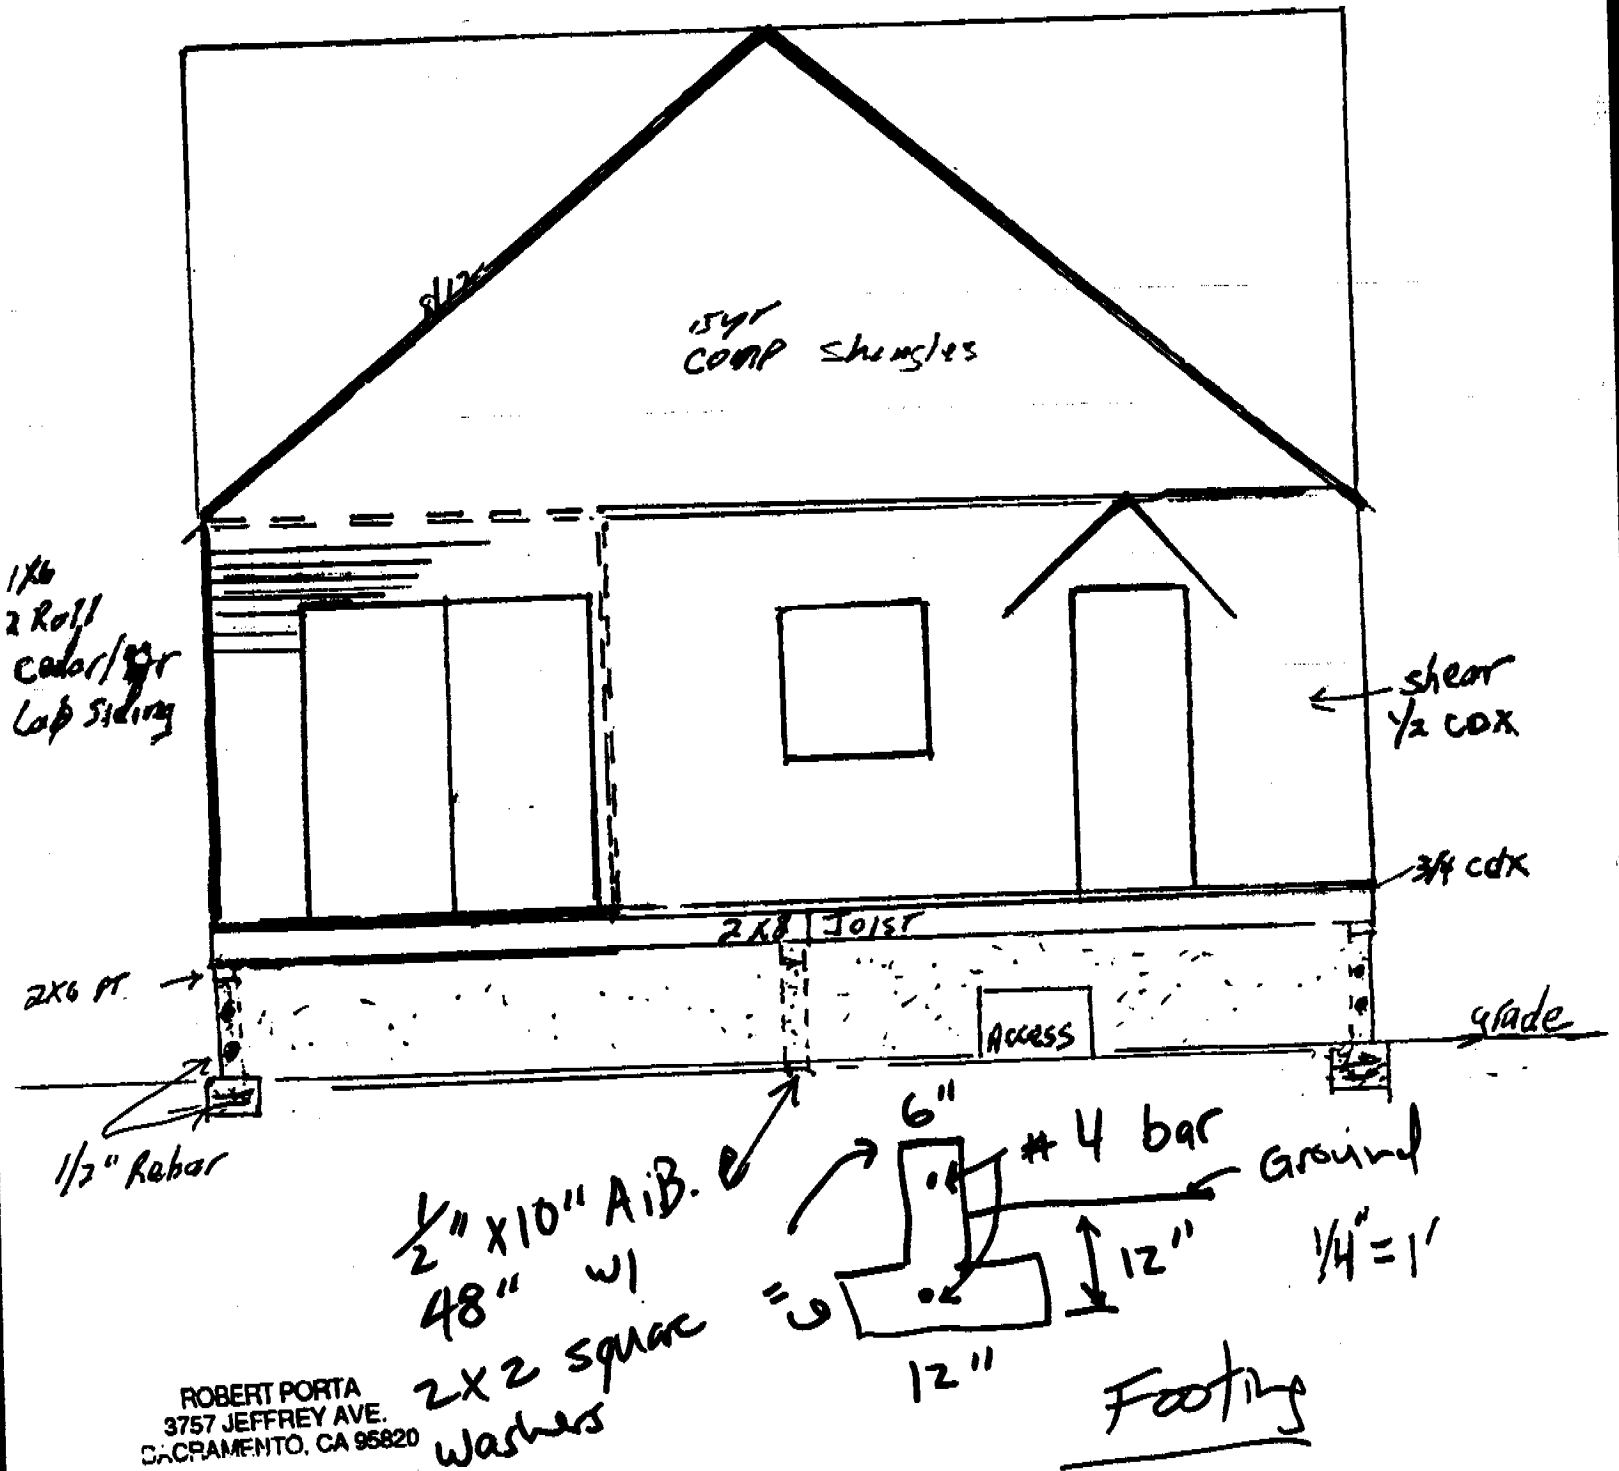 8/12
15yr
comp shingles
1x6
2 Roll
cedar/fir
Lap siding
shear
1/2 CDX
3/4 cdx
2x8 Joist
2x6 PT
Access
grade
1/2" Rebar
6"
# 4 bar
Ground
1/2" x10" A.B. @
48" w/
2x2 square
washers
6"
12"
12"
1/4" = 1'
Footing
ROBERT PORTA
3757 JEFFREY AVE.
SACRAMENTO, CA 95820